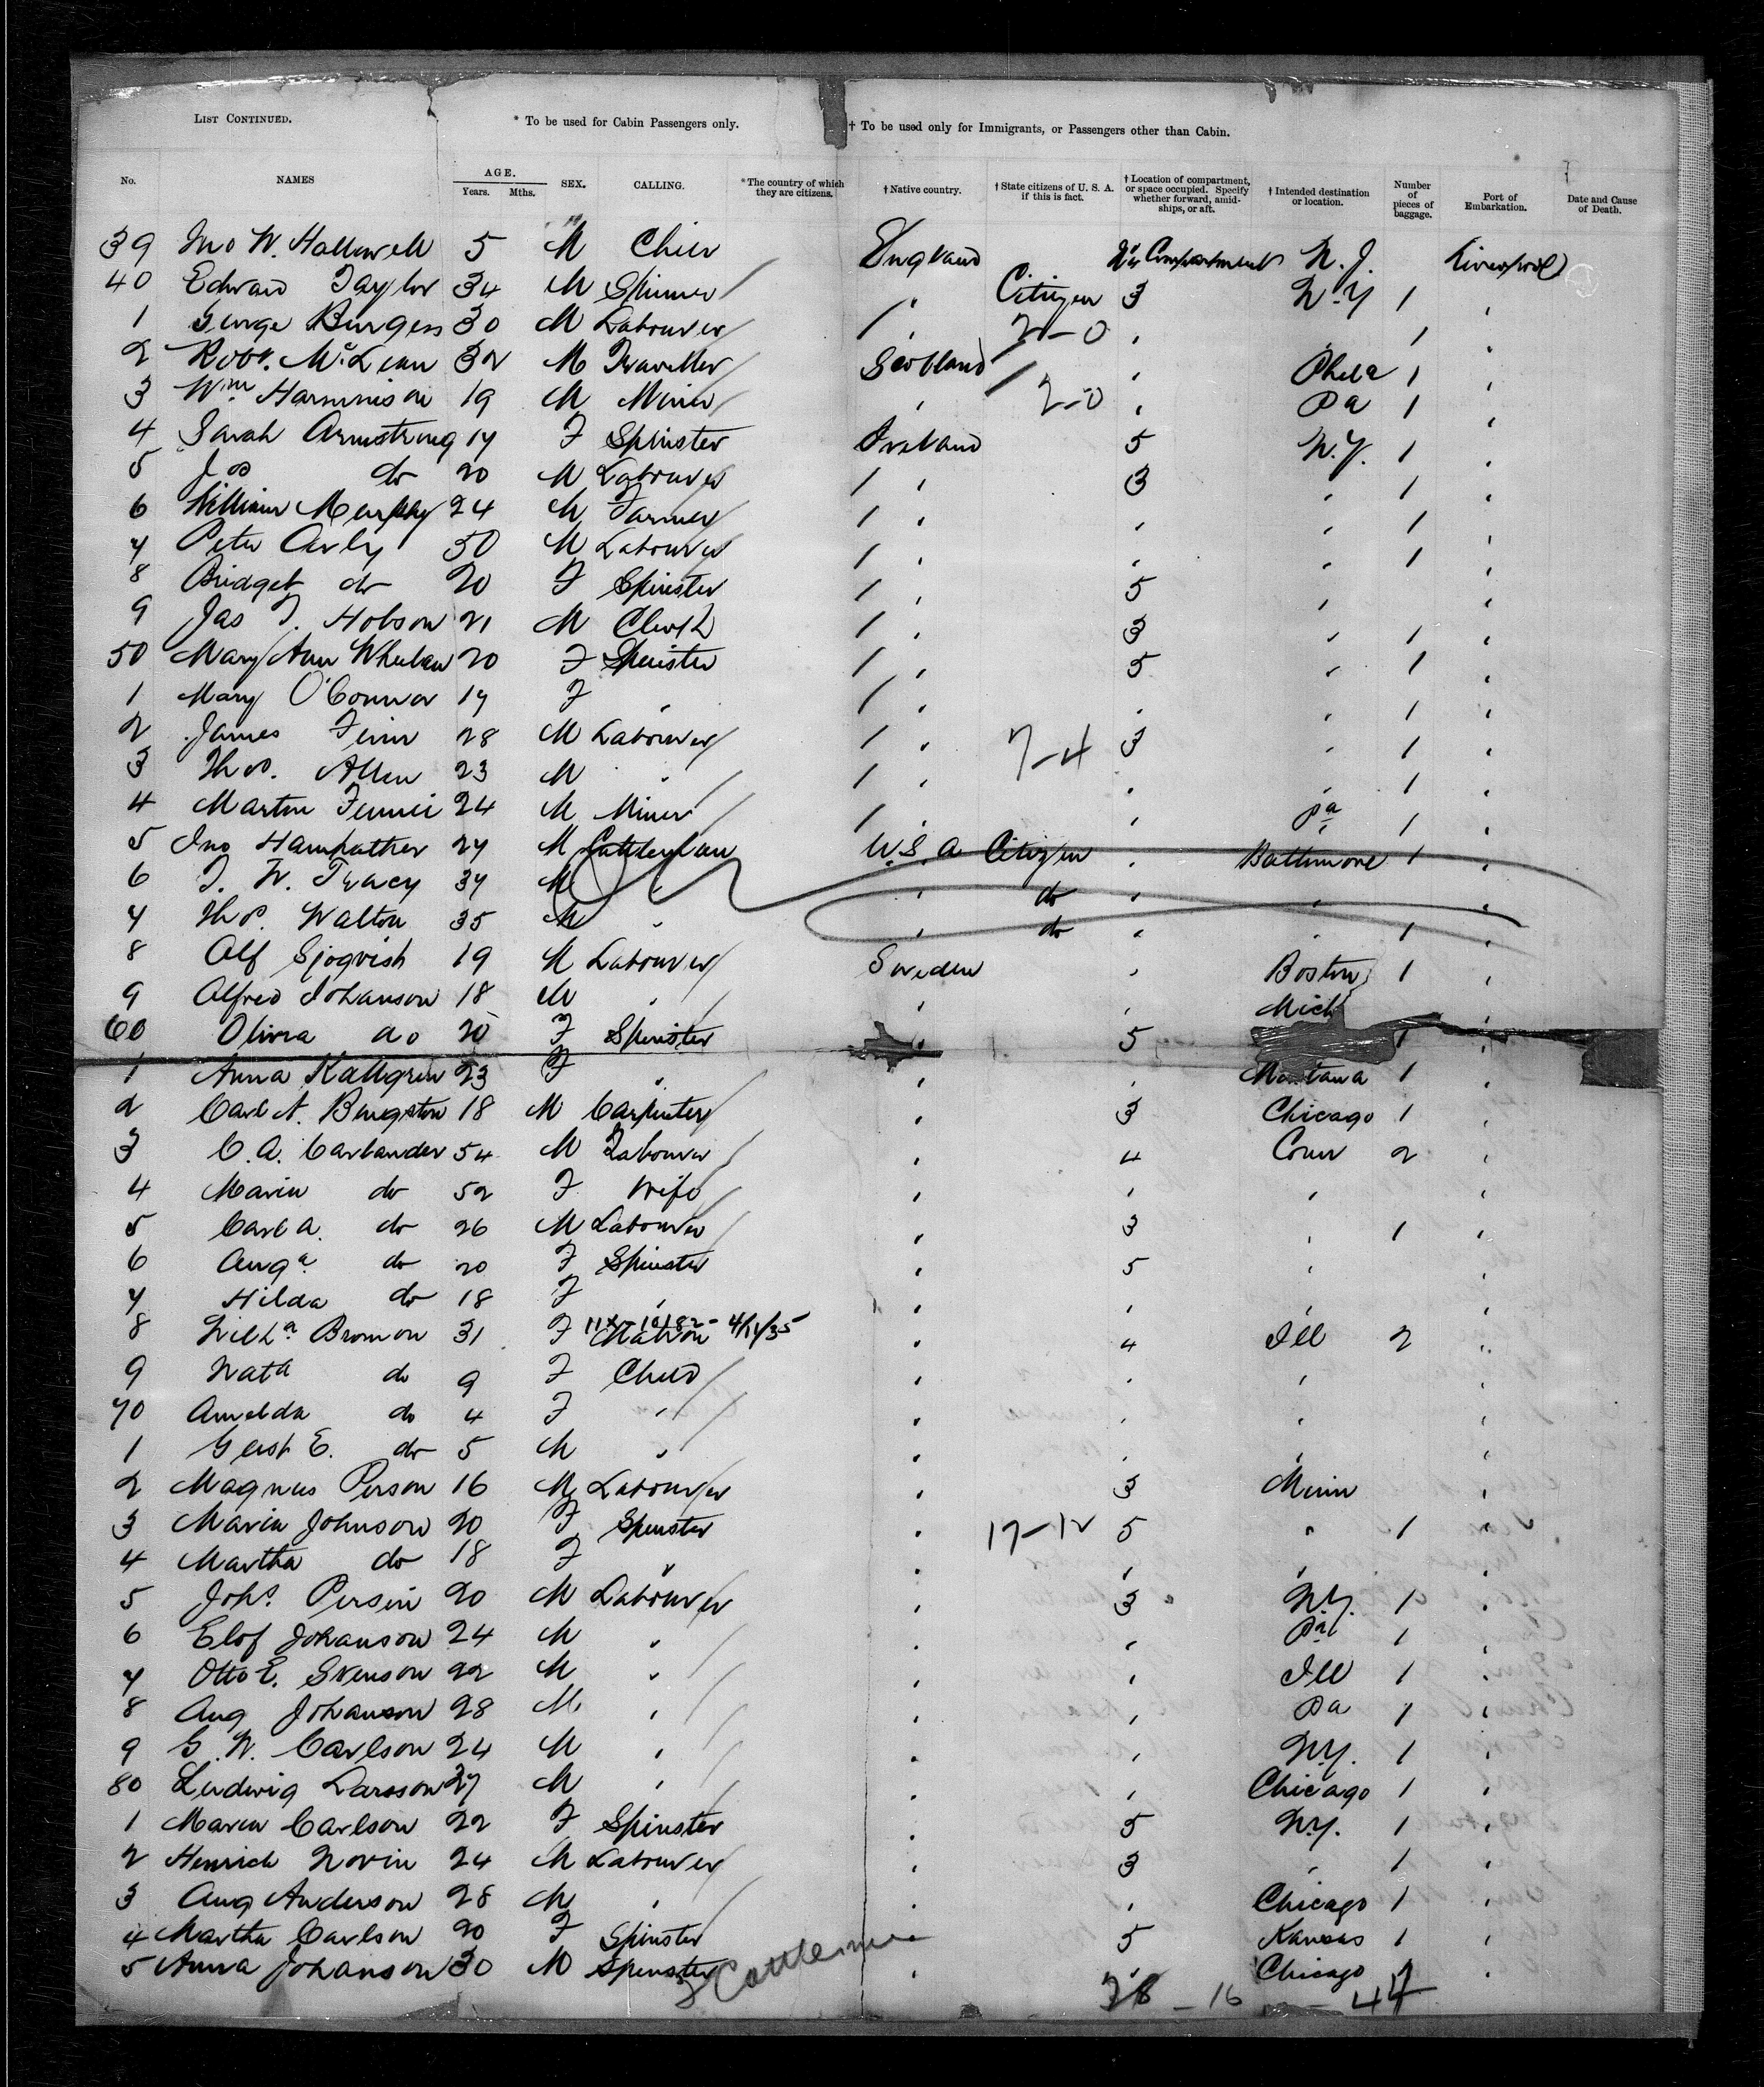 LIST CONTINUED. * To be used for Cabin Passengers only. † To be used only for Immigrants, or Passengers other than Cabin.
No. NAMES AGE. Years. Mths. SEX. CALLING. * The country of which they are citizens. † Native country. † State citizens of U. S. A. if this is fact. † Location of compartment, or space occupied. Specify whether forward, amidships, or aft. † Intended destination or location. Number of pieces of baggage. Port of Embarkation. Date and Cause of Death.
39 Jno W. Hallewell 5 M Child England Compartment N. J. Liverpool
40 Edward Taylor 34 M Spinner " Citizen 3 N.Y 1 "
1 George Burgess 30 M Labourer / " 2-0 " 1 "
2 Robt. McLean 32 M Traveller Scotland / " Phila 1 "
3 Wm Harminson 19 M Miner " 2-0 " Pa 1 "
4 Sarah Armstrong 17 F Spinster Ireland 5 N.Y. 1 "
5 Jos do 20 M Labourer / " 3 " 1 "
6 William Murphy 24 M Farmer / " " " 1 "
7 Peter 50 M Labourer / " " " 1 "
8 Bridget do 20 F Spinster / " 5 " "
9 Jas T. Hobson 21 M Clerk / " 3 " 1 "
50 Mary Ann Whelan 20 F Spinster / " 5 " 1 "
1 Mary O'Connor 17 F " / " " " 1 "
2 James Finn 28 M Labourer / " 7-4 3 " 1 "
3 Thos. Allen 23 M " / " " " 1 "
4 Martin 24 M Miner / " " Pa 1 "
5 Jno Hampather 27 M Cattleman U.S.A Citizen " Baltimore 1 "
6 T. W. Tracy 37 M " " do " " "
7 Thos. Walton 35 M " " do " " 1 "
8 Alf Sjoqvish 19 M Labourer Sweden " Boston 1 "
9 Alfred Johanson 18 M " " " Mich "
60 Olivia do 20 F Spinster " 5 1 "
1 Anna Kallgren 23 F " " " Montana 1 "
2 Carl A. Bengston 18 M Carpenter " 3 Chicago 1 "
3 C. A. Carlander 54 M Labourer " 4 Conn 2 "
4 Maria do 52 F Wife " " " "
5 Carl A. do 26 M Labourer " 3 " 1 "
6 Auga do 20 F Spinster " 5 " "
7 Hilda do 18 F " " " " "
8 Bromon 31 F Matron 11X-10182- 4/11/35 " 4 Ill 2 "
9 Nath do 9 F Child " " " "
70 Amelda do 4 F " " " " "
1 Gerst E. do 5 M " " " " "
2 Magnus Person 16 M Labourer " 3 Minn "
3 Maria Johnson 20 F Spinster " 17-12 5 " 1 "
4 Martha do 18 F " " " " "
5 Johs. Persin 20 M Labourer " 3 N.Y. 1 "
6 Elof Johanson 24 M " " " Pa 1 "
7 Otto E. Svenson 22 M " " " Ill 1 "
8 Aug Johanson 28 M " " " Pa 1 "
9 G. W. Carlson 24 M " " " N.Y. 1 "
80 Ludwig Larsson 27 M " " " Chicago 1 "
1 Maria Carlson 22 F Spinster " 5 N.Y. 1 "
2 Henrich Norin 24 M Labourer " 3 " 1 "
3 Aug Anderson 28 M " " " Chicago 1 "
4 Martha Carlson 20 F Spinster " 5 Kansas 1 "
5 Anna Johanson 30 M Spinster " " Chicago 1 "
3 Cattlemen 28 - 16 - 47